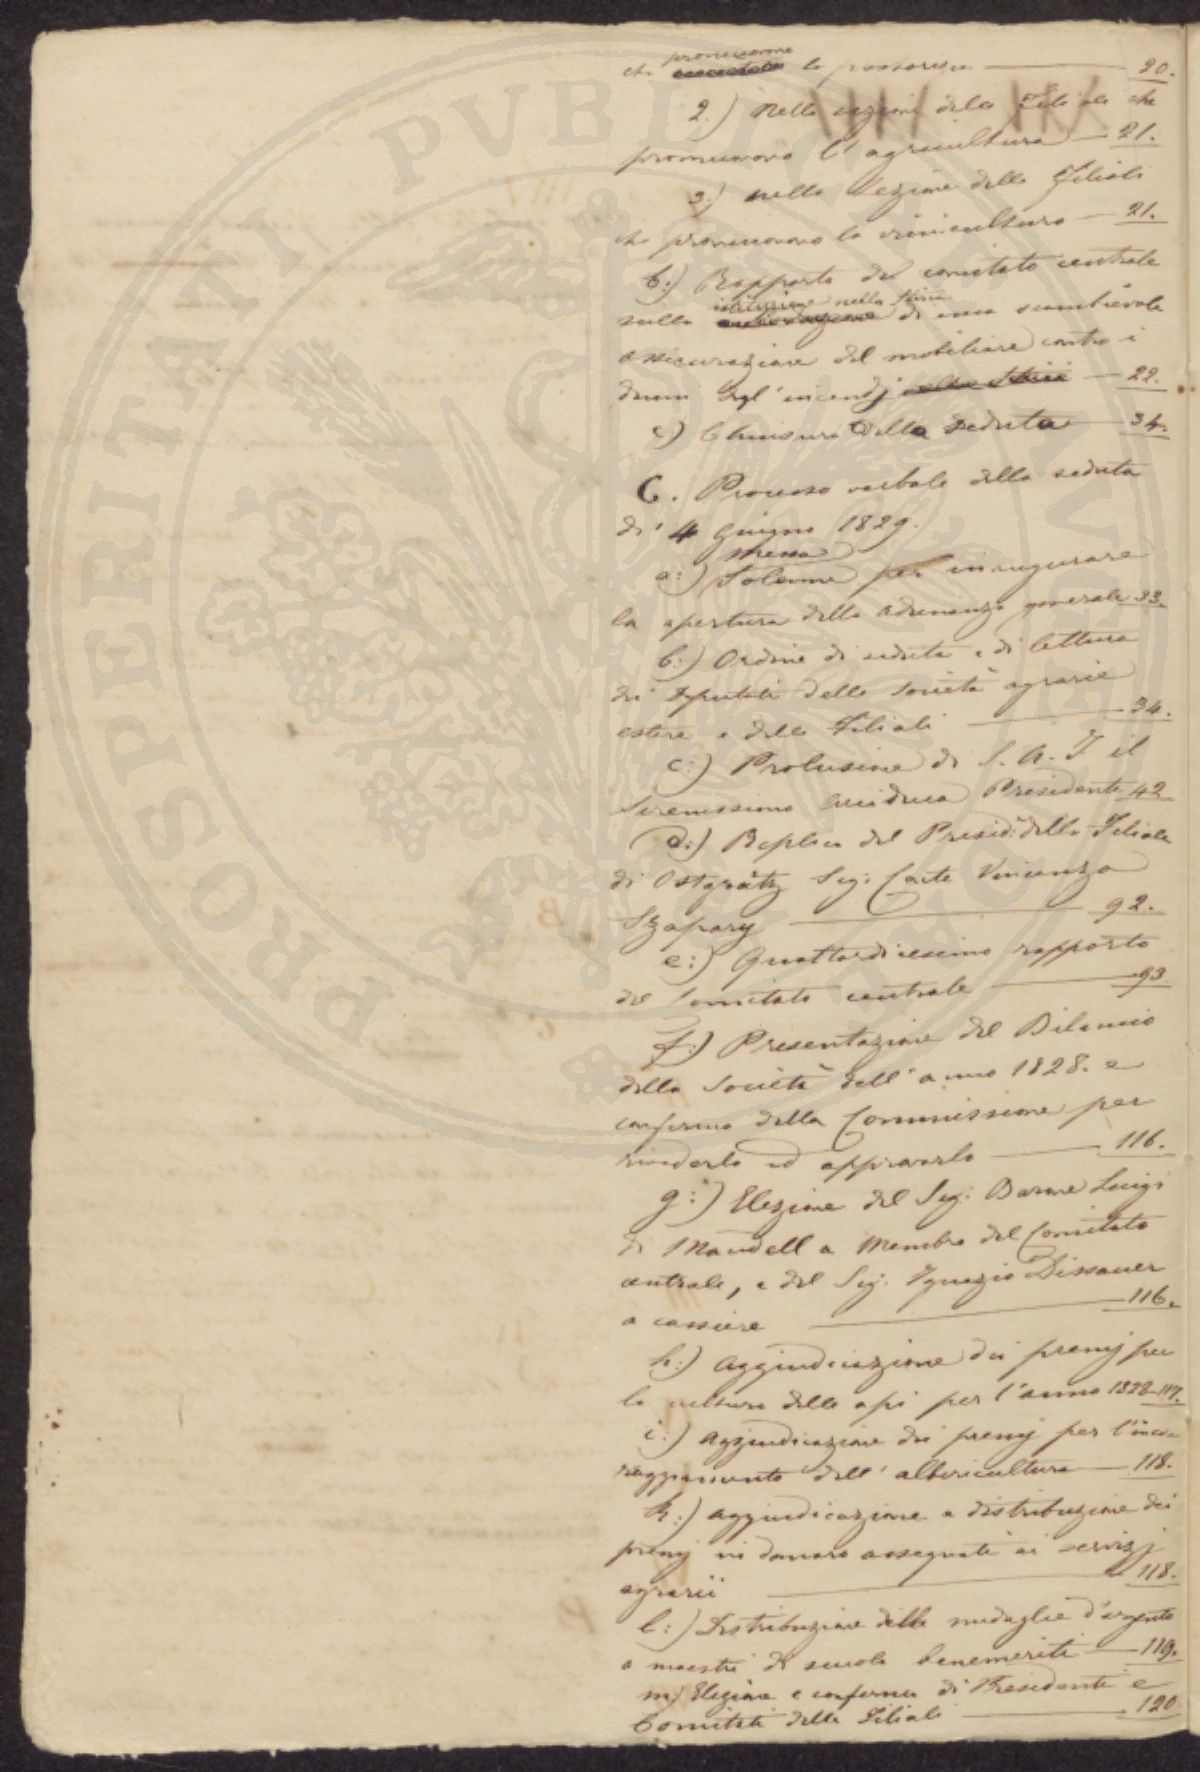 che promuovono la pastorizia 20.
2.) Nella sezione delle Filiali che
promuovono l'agricultura 21.
3.) nella sezione delle Filiali
che promuovono la vinicultura 21.
b.) Rapporto del comitato centrale
sulla istituzione nella Stiria di una scambievole
assicurazione del mobiliare contro i
danni degl'incendj 22.
c) Chiusura della seduta 34.
C. Processo verbale della seduta
di 4 giugno 1829.
a:) Messa Solenne per inaugurare
la apertura della adunanza generale 33.
b:) Ordine di seduta e di lettura
dei deputati delle società agrarie
estere e delle Filiali 34.
c:) Prolusione di S. A. I il
Serenissimo Arciduca Presidente 42
d:) Replica del Presid: della Filiale
di Ostgrätz Sig: Conte Vincenzo
Szapary 92.
e:) Quattordicesimo rapporto
del Comitato centrale 93
f.) Presentazione del Bilancio
della Società dell'anno 1828. e
conferma della Commissione per
rivederlo ed approvarlo 116.
g:) Elezione del Sig: Barone Luigi
di Mandell a Membro del Comitato
centrale, e del Sig: Ignazio Dissauer
a cassiere 116.
h:) Aggiudicazione dei premj per
la cultura delle api per l'anno 1828 117.
i:) Aggiudicazione dei premj per l'inco-
raggiamento dell'albericultura 118.
k:) Aggiudicazione e distribuzione dei
premj in danaro assegnati ai servizj
agrarii 118.
l:) Distribuzione delle medaglie d'argento
a maestri di scuola benemeriti 119.
m) Elezione e conferma di Presidenti e
Comitati delle Filiali 120
PROSPERITATI PVBLICAE